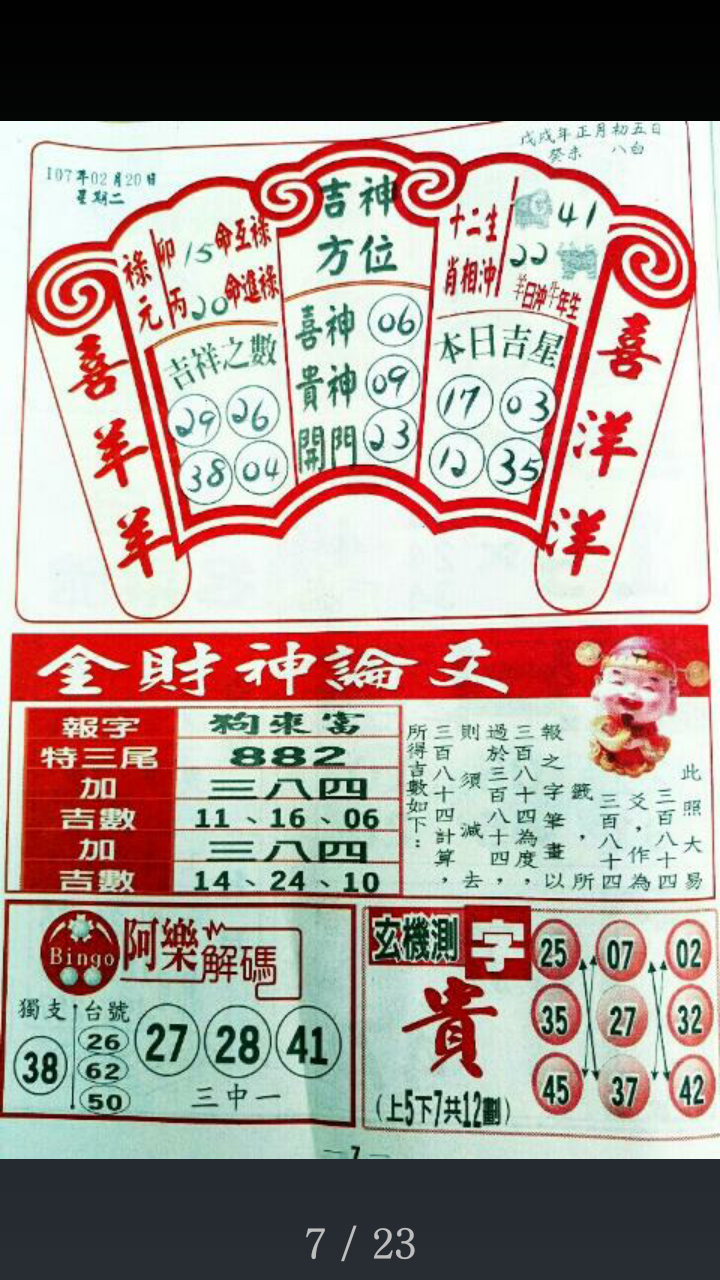 戊戌年正月初五日
癸未 八白
107年02月20日
星期二
吉神
方位
喜神 06
貴神 09
開門 23
祿元
卯 15 命互祿
丙 20 命進祿
吉祥之數
29 26
38 04
十二生
肖相冲
41
22
羊日冲牛年生
本日吉星
17 03
12 35
喜羊羊
喜洋洋
金財神論爻
報字 狗來富
特三尾 882
加 三八四
吉數 11、16、06
加 三八四
吉數 14、24、10
此照大易
三百八十四
爻，作為
三百八十四
籤，所
報之字筆畫以
三百八十四為度，
過於三百八十四，
則須減去
三百八十四計算，
所得吉數如下：
Bingo
阿樂解碼
獨支
38
台號
26
62
50
27 28 41
三中一
玄機測字
貴
（上5下7共12劃）
25 07 02
35 27 32
45 37 42
— 7 —
7 / 23